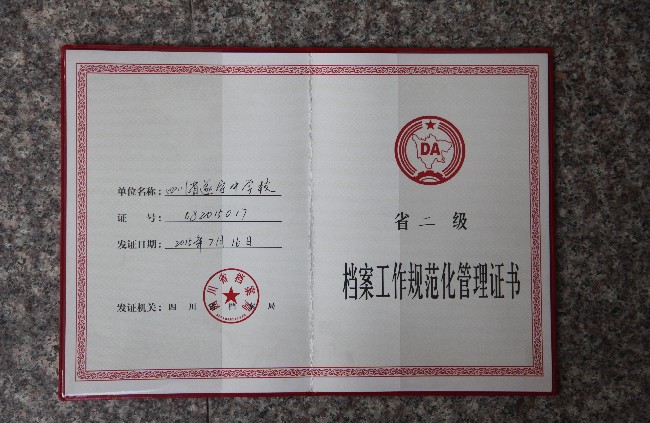 单位名称: 四川省遂宁中学校
证 号: 0J2015017
发证日期: 2015年7月16日
发证机关: 四川 档 局
四川省档案局
DA
省二级
档案工作规范化管理证书